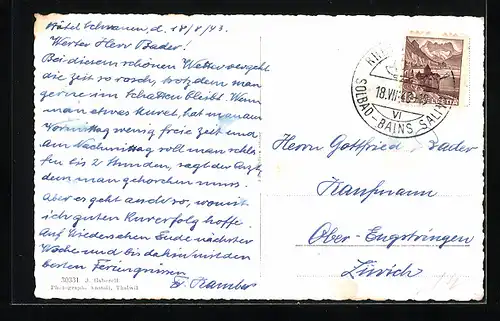 Hôtel Schwanen, d. 18/8/43.
Werter Herr Bader!
Bei diesem schönen Wetter vergeht
die Zeit so rasch, trotzdem man
gerne im Schatten bleibt. Wenn
man etwas kuret, hat man am
Vormittag wenig freie Zeit und
am Nachmittag soll man schla-
fen bis 2 Stunden, sagt der Arzt,
dem man gehorchen muss.
Aber es geht auch so, womit
ich guten Kurerfolg hoffe.
Auf Wiedersehen Ende nächster
Woche und bis dahin mit den
besten Feriengrüssen
30331 J. Gaberell
Photograph. Anstalt, Thalwil
HELVETIA
18.VII
VI
SOLBAD-BAINS SALINS
Herrn Gottfried Bader
Kaufmann
Ober-Engstringen
Zürich